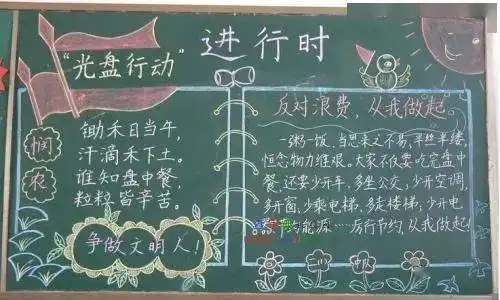 “光盘行动”进行时
悯农
锄禾日当午,
汗滴禾下土。
谁知盘中餐,
粒粒皆辛苦。
争做文明人!
反对浪费,从我做起。
一粥一饭,当思来之不易,半丝半缕,
恒念物力维艰。大家不仅要吃完盘中
餐,还要少开车,多坐公交,少开空调,
多开窗,少乘电梯,多走楼梯,少开电
约能源……厉行节约,从我做起!